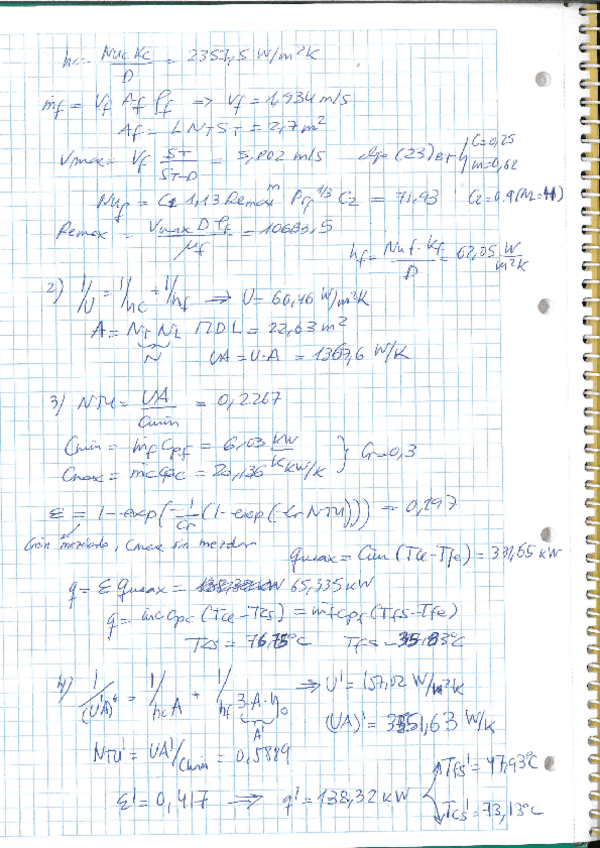 hc = Nuc Kc / D = 2357,5 W/m²K
ṁf = Vf Af ρf => Vf = 1,934 m/s
Af = L NT ST = 2,7 m²
Vmax = Vf ST / (ST-D) = 5,802 m/s { C=0,25 m=0,62
Nuf = C1 1,13 Remax^m Prf^1/3 C2 = 71,93 C2=0.9 (NL=4)
Remax = Vmax D ρf / μf = 10683,5
hf = Nuf · Kf / D = 62,05 W/m²K
2) 1/U = 1/hc + 1/hf => U = 60,46 W/m²K
A = NT NL Π D L = 22,63 m²
N UA = U·A = 1367,6 W/K
3) NTU = UA / Cmin = 0,2267
Cmin = ṁf Cpf = 6,03 kW/K } Cr=0,3
Cmax = ṁc Cpc = 20,136 kW/K
ε = 1-exp(-1/Cr (1-exp(-Cr NTU))) = 0,197
Cmin mezclado, Cmax sin mezclar
qmax = Cmin (Tce-Tfe) = 331,65 kW
q = ε qmax = 65,335 kW
q = ṁc Cpc (Tce-Tcs) = ṁf Cpf (Tfs-Tfe)
Tcs = 76,75°C Tfs = 35,83°C
4) 1/(UA)' = 1/hcA + 1/hf 3·A·η0 => U' = 157,02 W/m²K
A' (UA)' = 3551,63 W/K
NTU' = UA'/Cmin = 0,5889
ε' = 0,417 => q' = 138,32 kW Tfs' = 47,93°C
Tcs' = 73,13°C